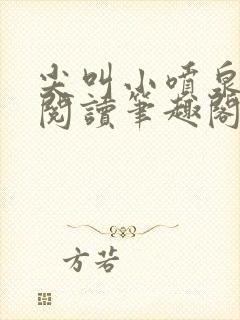 尖叫小噴泉
閱讀筆趣閣
方若